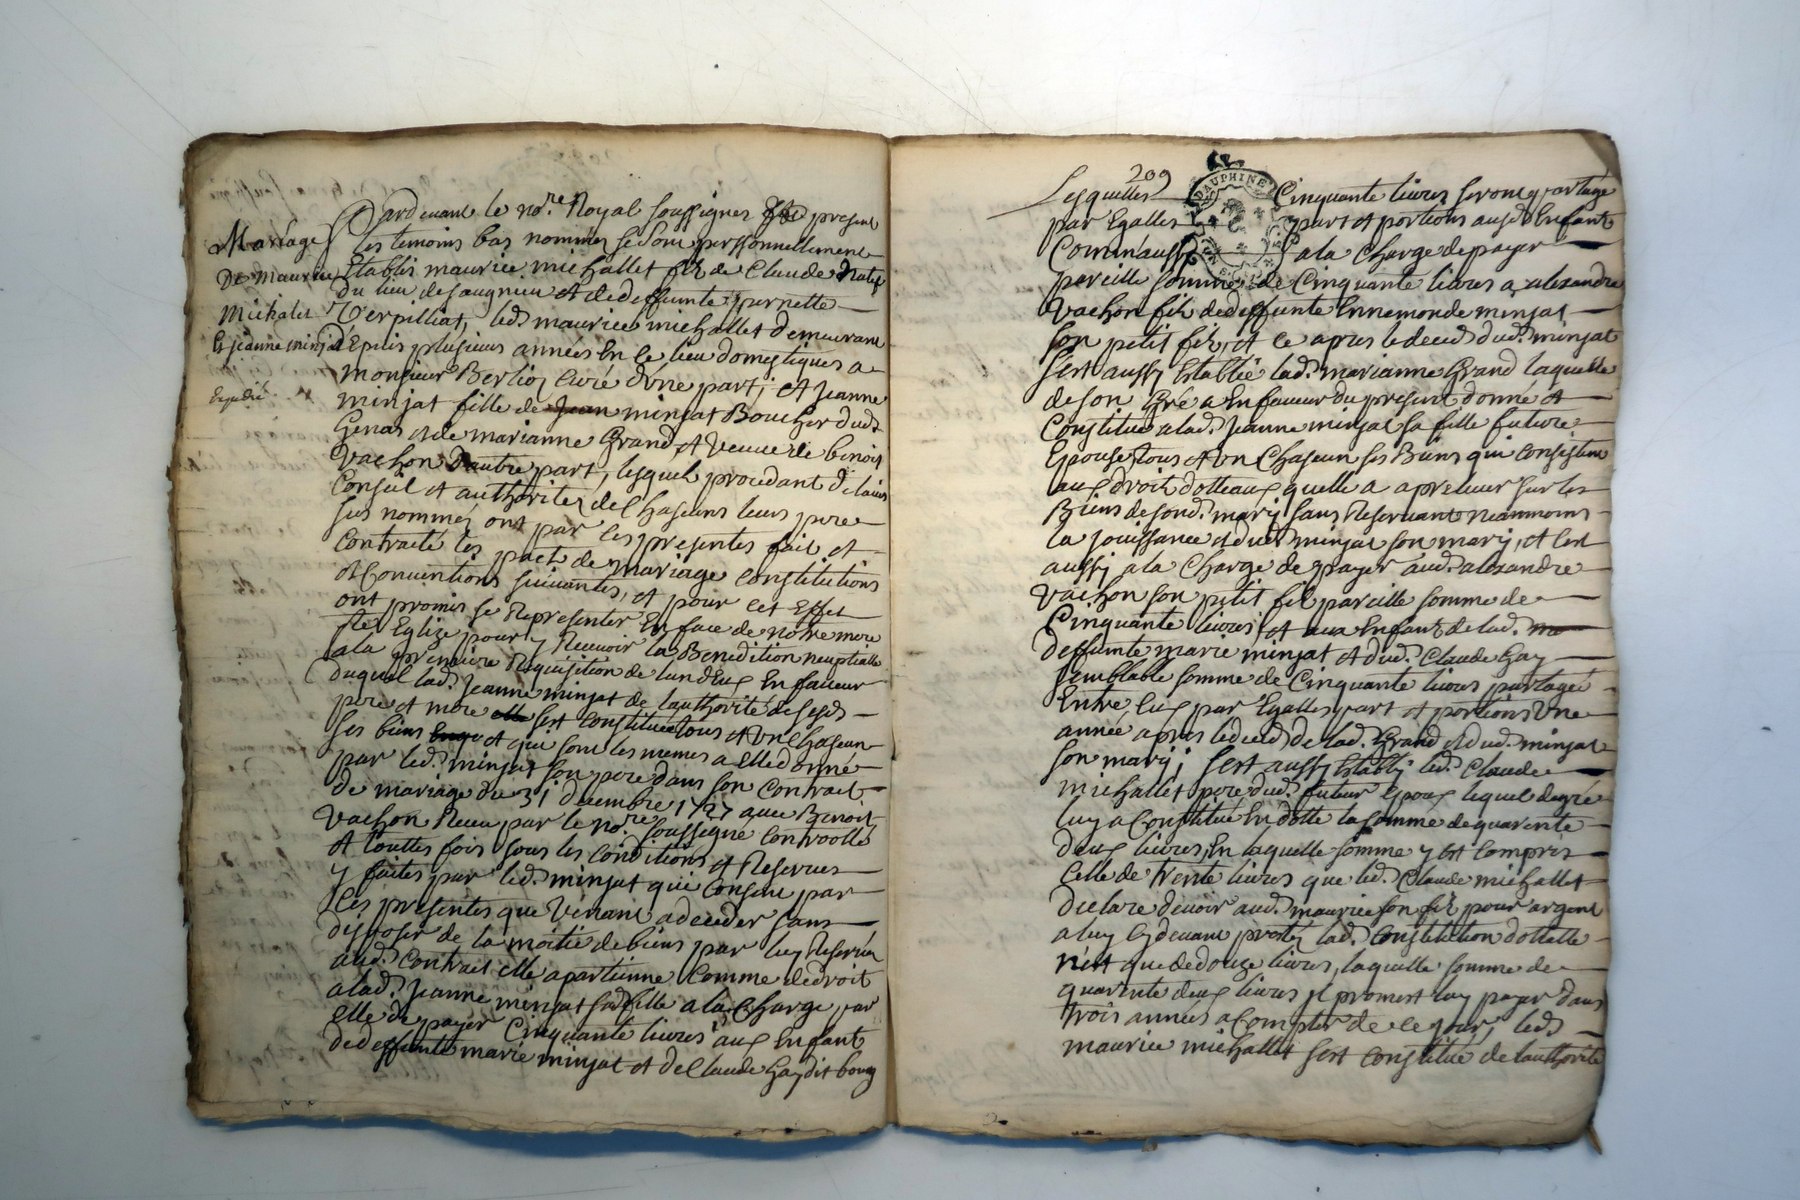 Mariage
De maurice
Michalet
Et jeanne minjat
Expedié
Pardevant le no.re Royal soussignez present
les temoins bas nommez se sont personnellement
Etablis maurice michallet fils de Claude Natif
du lieu de saugnieu et de deffunte pernette
Terpilliat, led. maurice michallet demeurant
depuis plusieurs années En ce lieu domestiques a
monsieur Berlioz Curé d'vne part; et Jeanne
minjat fille de Jean minjat Boucher dud.
Genas et de marianne Grand et veuve de benoit
vachon d'autre part, lesquels procedant de l'avis
Conseil et authorités de Chascuns leurs pere
sus nommez ont par les presentes fait et
Contracté les pact de mariage constitutions
et Conventions suivantes, et pour cet Effet
ont promis se Representer En face de notre mere
ste Eglize pour y Recevoir la Benedition neuptialle
a la premiere Requisition de lun deux En faveur
duquel lad. Jeanne minjat de l'authorité de sesds
pere et mere elle sest constituée tous et vn chascun
ses biens et qui sont les memes a elle donné
par led. minjat son pere dans son Contrait
de mariage du 31 decembre 1727 avec Benoit
vachon Receu par le no.re soussigné controollé
et touttes fois sous les conditions et Reserves
y faites par led. minjat qui consent par
les presentes que venant a deceder sans
disposer de la moitié de biens par luy Reservéz
aud. contrait elle apartienne comme de droit
a lad. Jeanne minjat sad. fille a la charge par
elle de payer Cinquante livres aux Enfant
de deffunte marie minjat et de Claude Gay dit bourg
209
DAUPHINE
Lesquelles Cinquante livres seront partagé
par Egalles part et portions ausd. Enfant
Comm'aussy a la Charge de payer
pareille somme de Cinquante livres a alexandre
vachon fils de deffunte Ennemonde minjat
son petit fils, et ce apres le deces dud. minjat
s'est aussy Establie lad. marianne Grand laquelle
de son Gré a En faveur du present donné et
Constitué a lad. Jeanne minjat sa fille future
Epouse tous et vn chascun ses Biens qui consistent
aux droits dotteaux quelle a a prelever sur les
Biens de sond. mary sans Reservant neanmoins
la jouissance et dud. minjat son mary, et c'est
aussy a la charge de payer aud. alexandre
vachon son petit fils pareille somme de
Cinquante livres et aux Enfant de lad.
deffunte marie minjat et dud. Claude Gay
semblable somme de Cinquante livres partagée
Entre eux par Egalles part et portions vne
année apres le deces de lad. Grand et dud. minjat
son mary; s'est aussy Etably led. Claude
michallet pere dud. futur Epoux lequel de gré
luy a Constitué En dotte la somme de quarente
deux livres, En laquelle somme y est compris
celle de trente livres que led. Claude michallet
declare devoir aud. maurice son fils pour argent
a luy cydevant prestés lad. constitution dottalle
n'est que de douze livres, laquelle somme de
quarente deux livres il promest luy payer dans
trois années a Compter de ce jour; led.
maurice michallet s'est constitué de lauthorité